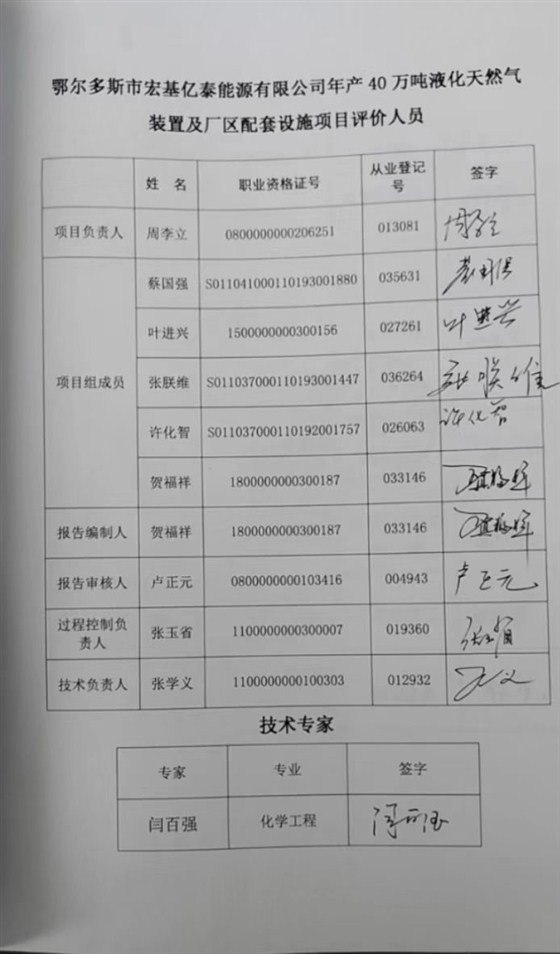 鄂尔多斯市宏基亿泰能源有限公司年产 40 万吨液化天然气
装置及厂区配套设施项目评价人员
姓 名 职业资格证号 从业登记号 签字
项目负责人 周李立 0800000000206251 013081
项目组成员 蔡国强 S011041000110193001880 035631
叶进兴 1500000000300156 027261 叶进兴
张朕维 S011037000110193001447 036264
许化智 S011037000110192001757 026063 许化智
贺福祥 1800000000300187 033146
报告编制人 贺福祥 1800000000300187 033146
报告审核人 卢正元 0800000000103416 004943 卢正元
过程控制负责人 张玉省 1100000000300007 019360
技术负责人 张学义 1100000000100303 012932
技术专家
专家 专业 签字
闫百强 化学工程